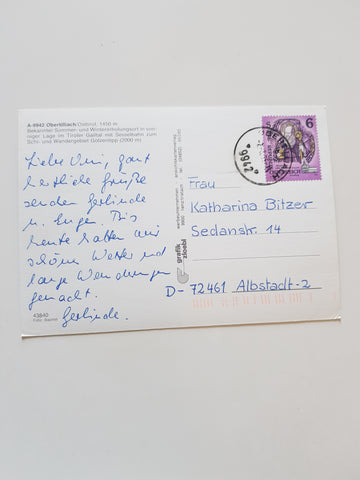 A-9942 Obertilliach/Osttirol, 1450 m
Bekannter Sommer- und Wintererholungsort in son-
niger Lage im Tiroler Gailtal mit Sesselbahn zum
Schi- und Wandergebiet Golzentipp (2000 m)
Liebe Omi, ganz
herzliche Grüße
senden Gerlinde
u. Eugen. Bis
heute hatten wir
schönes Wetter und
lange Wanderungen
gemacht.
Gerlinde.
43840
grafik
zloebl
6
Frau
Katharina Bitzer
Sedanstr. 14
D- 72461 Albstadt-2